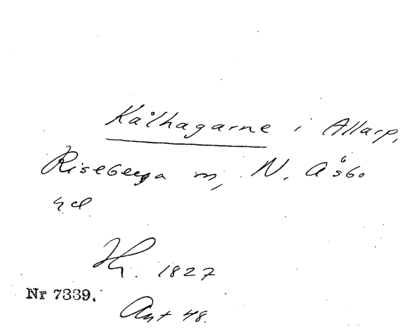 Kålhagarne i Allarp,
Riseberga m, N. Åsbo
hd.
Hr. 1827
Nr 7339.
Ant 48.